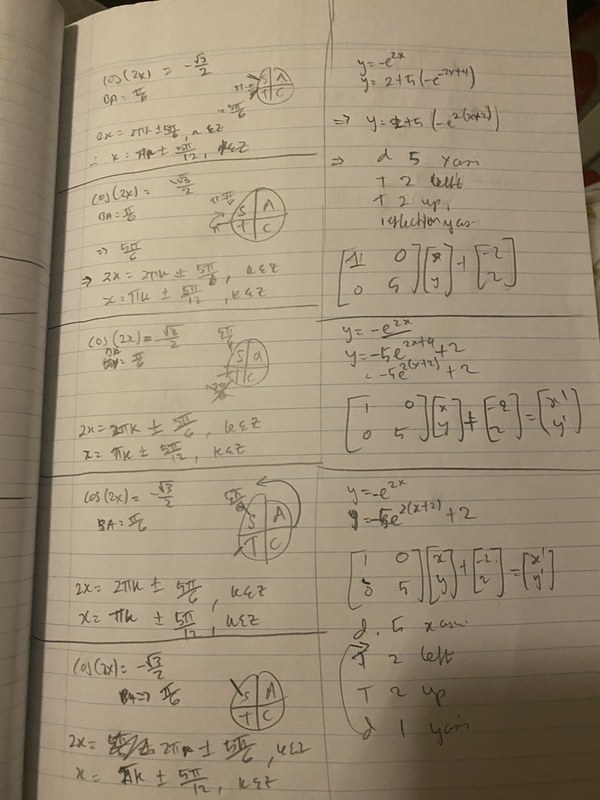 cos(2x) = -√3/2
BA = π/6
S A
T C
2x = 2πk ± 5π/6, k∈Z
∴ x = πk ± 5π/12, k∈Z
cos(2x) = -√3/2
BA = π/6
S A
T C
⇒ 5π/6
⇒ 2x = 2πk ± 5π/6, k∈Z
x = πk ± 5π/12, k∈Z
cos(2x) = -√3/2
BA = π/6
5π/6
S a
T C
2x = 2πk ± 5π/6, k∈Z
x = πk ± 5π/12, k∈Z
cos(2x) = -√3/2
BA = π/6
5π/6
S A
T C
2x = 2πk ± 5π/6, k∈Z
x = πk ± 5π/12, k∈Z
cos(2x) = -√3/2
BA => π/6
S A
T C
2x = 2πk ± 5π/6, k∈Z
x = πk ± 5π/12, k∈Z
y = -e^{2x}
y = 2+5(-e^{2x+4})
⇒ y = 2+5(-e^{2(x+2)})
⇒ d 5 xaxis
T 2 left
T 2 up,
reflection yaxis
[1 0; 0 5][x; y] + [-2; 2]
y = -e^{2x}
y = -5e^{2x+4} + 2
= -5e^{2(x+2)} + 2
[1 0; 0 5][x; y] + [-2; 2] = [x'; y']
y = -e^{2x}
y = -5e^{2(x+2)} + 2
[1 0; 0 5][x; y] + [-2; 2] = [x'; y']
d. 5 xaxis
T 2 left
T 2 up
d 1 yaxis